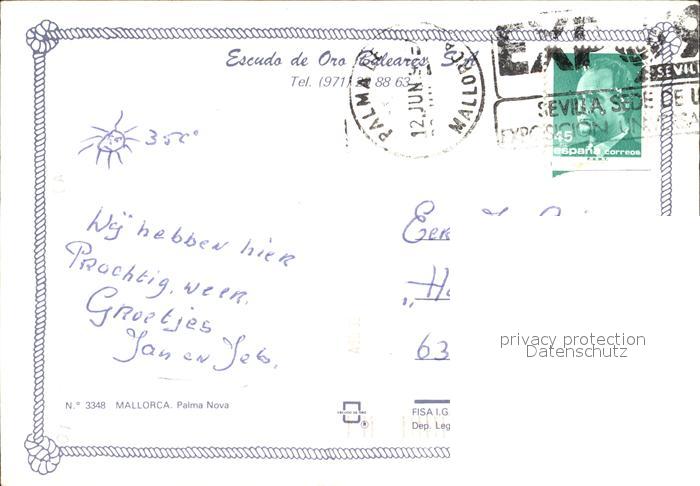 Escudo de Oro Baleares, S.A.
Tel. (971) 88 63
PALMA DE MALLORCA
12 JUN
EXPO
SEVILLA
SEVILLA, SEDE DE L
EXPOSICION UNIVERSA
45
españa correos
35c°
Wij hebben hier
Prachtig, weer.
Groetjes
Jan en Jeb.
"H
63
privacy protection
Datenschutz
N.° 3348 MALLORCA. Palma Nova
ESCUDO DE ORO
FISA I.G.
Dep. Leg